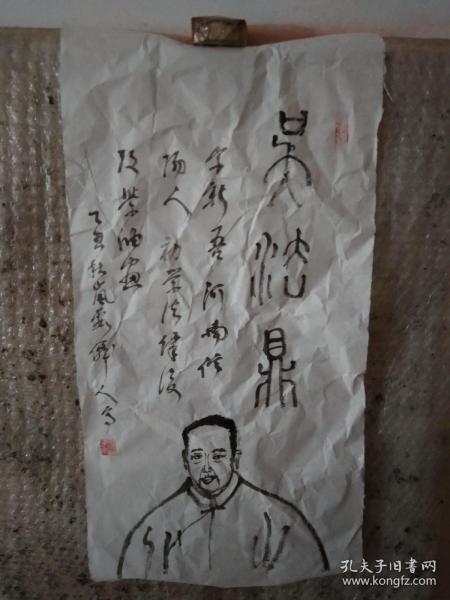 吴法鼎
字新吾河南信
阳人初学法律後
改学油画
乙亥秋嵐人写
孔夫子旧书网
www.kongfz.com